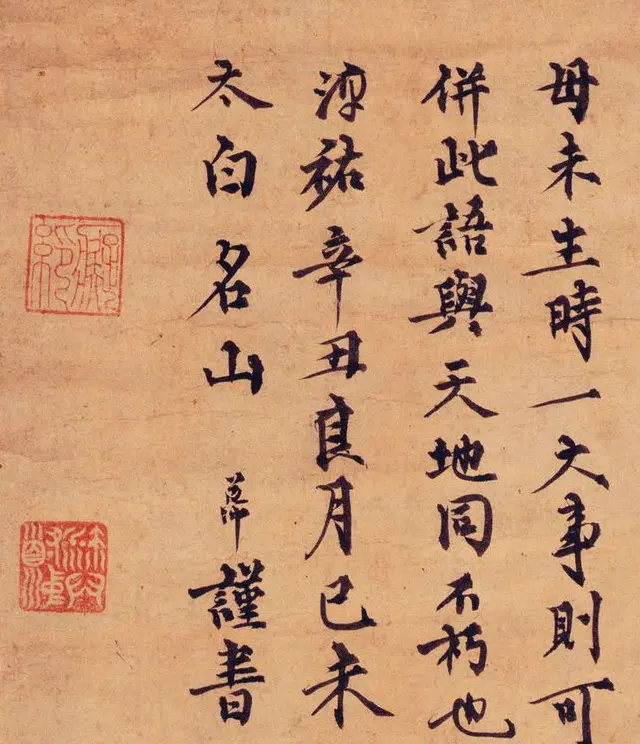 母未生時一大事則可
併此語與天地同不朽也
淳祐辛丑良月己未
太白名山 謹書
癡絕